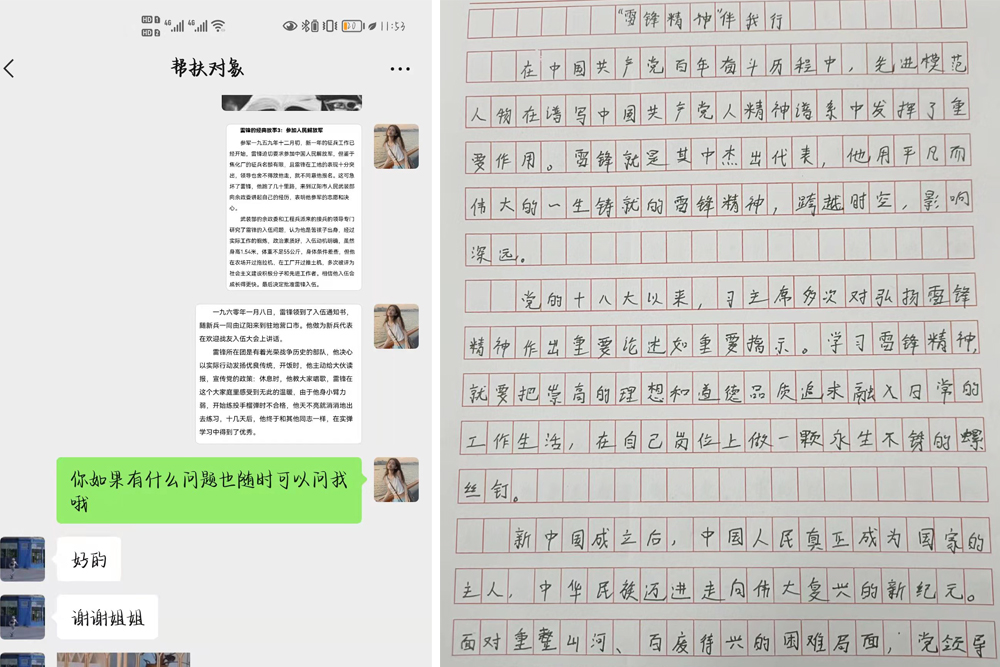 HD 1
HD 2
4G
4G
11:53
帮扶对象
雷锋的经典故事3：参加人民解放军
参军一九五九年十二月初，新一年的征兵工作已
经开始，雷锋迫切要求参加中国人民解放军。但鉴于
焦化厂的征兵名额有限，且雷锋在工地的表现十分突
出，领导也舍不得放他走，就不同意他报名。这可急
坏了雷锋，他跑了几十里路，来到辽阳市人民武装部
向余政委讲起自己的经历，表明他参军的志愿和决
心。
武装部的余政委和工程兵派来的接兵的领导专门
研究了雷锋的入伍问题，认为他是苦孩子出身，经过
实际工作的锻炼，政治素质好，入伍动机明确，虽然
身高1.54米，体重不足55公斤，身体条件差些，但他
在农场开过拖拉机，在工厂开过推土机，多次被评为
社会主义建设积极分子和先进工作者。相信他入伍会
成长得更快。最后决定批准雷锋入伍。
一九六零年一月八日，雷锋领到了入伍通知书，
随新兵一同由辽阳来到驻地营口市。他做为新兵代表
在欢迎战友入伍大会上讲话。
雷锋所在团是有着光荣战争历史的部队，他决心
以实际行动发扬优良传统，开饭时，他主动给大伙读
报，宣传党的政策：休息时，他教大家唱歌，雷锋在
这个大家庭里感受到无此的温暖，由于他身小臂力
弱，开始练投手榴弹时不合格，他天不亮就消消地出
去练习，十几天后，他终于和其他同志一样，在实弹
学习中得到了优秀。
你如果有什么问题也随时可以问我
哦
好的
谢谢姐姐
“雷锋精神”伴我行
在中国共产党百年奋斗历程中，先进模范
人物在谱写中国共产党人精神谱系中发挥了重
要作用。雷锋就是其中杰出代表，他用平凡而
伟大的一生铸就的雷锋精神，跨越时空，影响
深远。
党的十八大以来，习主席多次对弘扬雷锋
精神作出重要论述如重要指示。学习雷锋精神，
就要把崇高的理想和道德品质追求融入日常的
工作生活，在自己岗位上做一颗永生不锈的螺
丝钉。
新中国成之后，中国人民真正成为国家的
主人，中华民族迈进走向伟大复兴的新纪元。
面对重整山河、百废待兴的困难局面，党领导